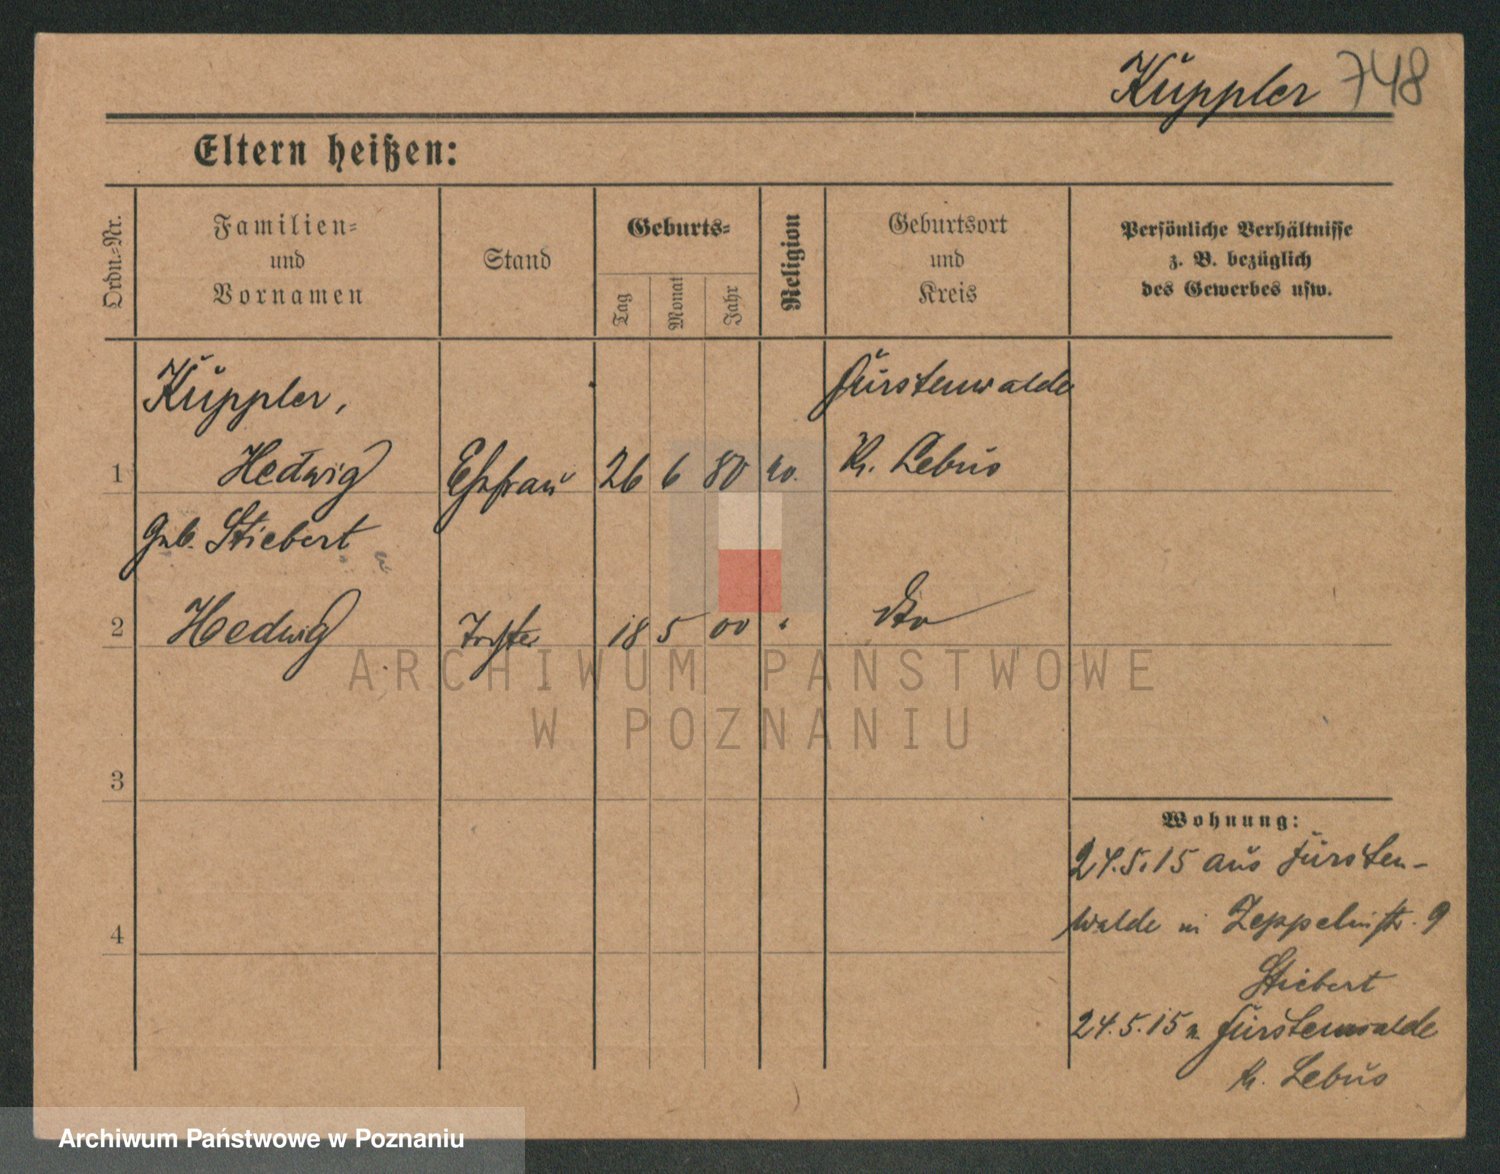 Küppler 748
Eltern heißen:
Ordn.-Nr.
Familien-
und
Vornamen
Stand
Geburts-
Tag
Monat
Jahr
Religion
Geburtsort
und
Kreis
Persönliche Verhältnisse
z. B. bezüglich
des Gewerbes usw.
Küppler, Fürstenwalde
1 Hedwig Ehefrau 26 6 80 ev. Kr. Lebus
geb. Stiebert
2 Hedwig Tochter 18 5 00 " dto
3
4
Wohnung:
24.5.15 aus Fürsten-
walde in Zeppelinstr. 9
Stiebert
24.5.15 n. Fürstenwalde
Kr. Lebus
ARCHIWUM PAŃSTWOWE
W POZNANIU
Archiwum Państwowe w Poznaniu